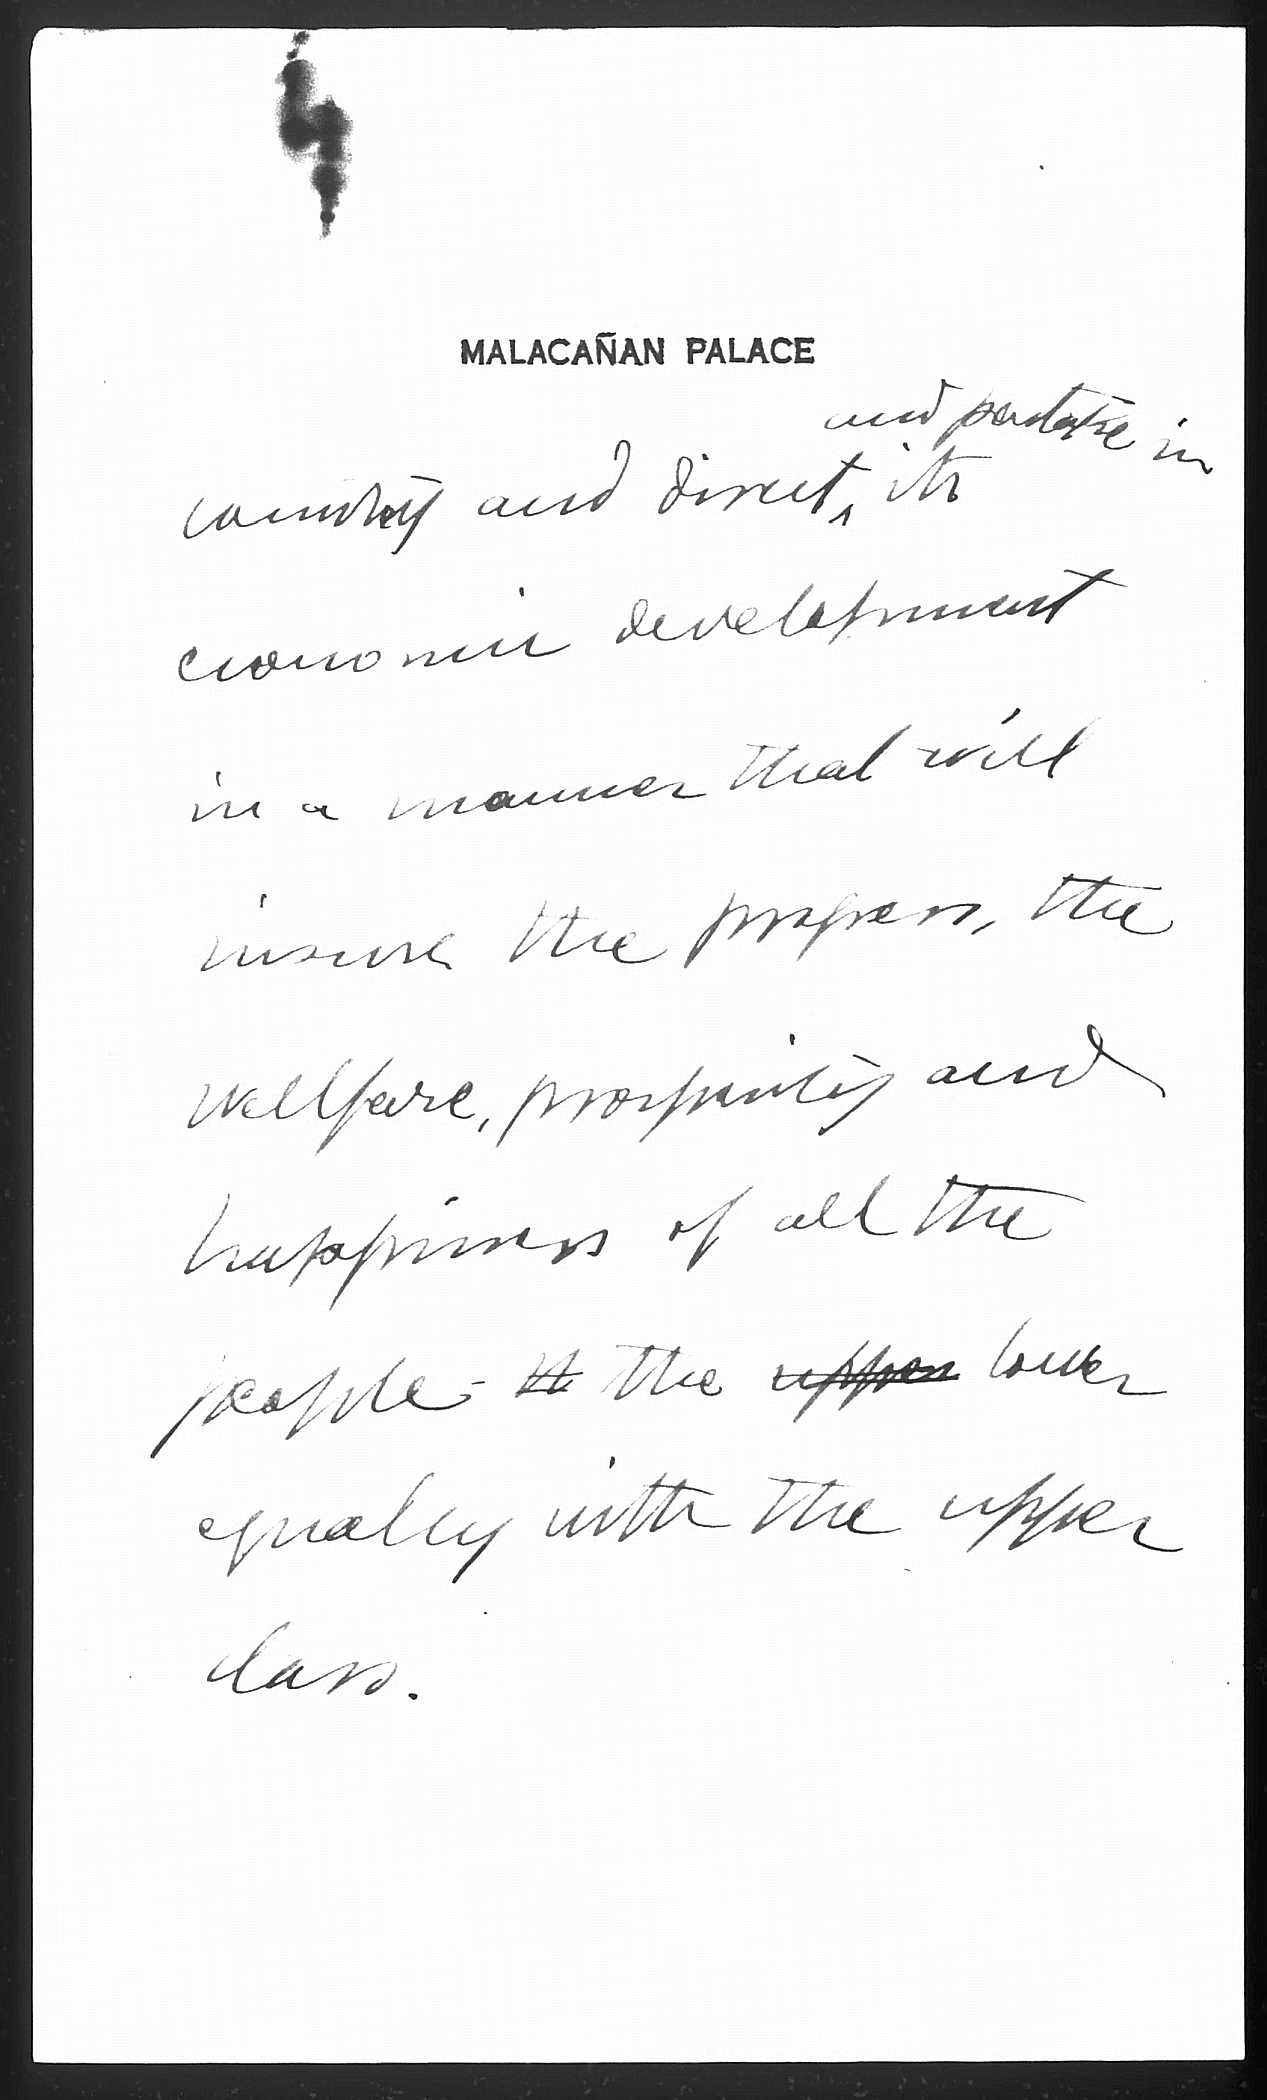 MALACAÑAN PALACE
and partake in
country and direct, its
economic development
in a manner that will
insure the progress, the
wellfare, prosperity and
happiness of all the
people - the upper lower
equally with the upper
class.